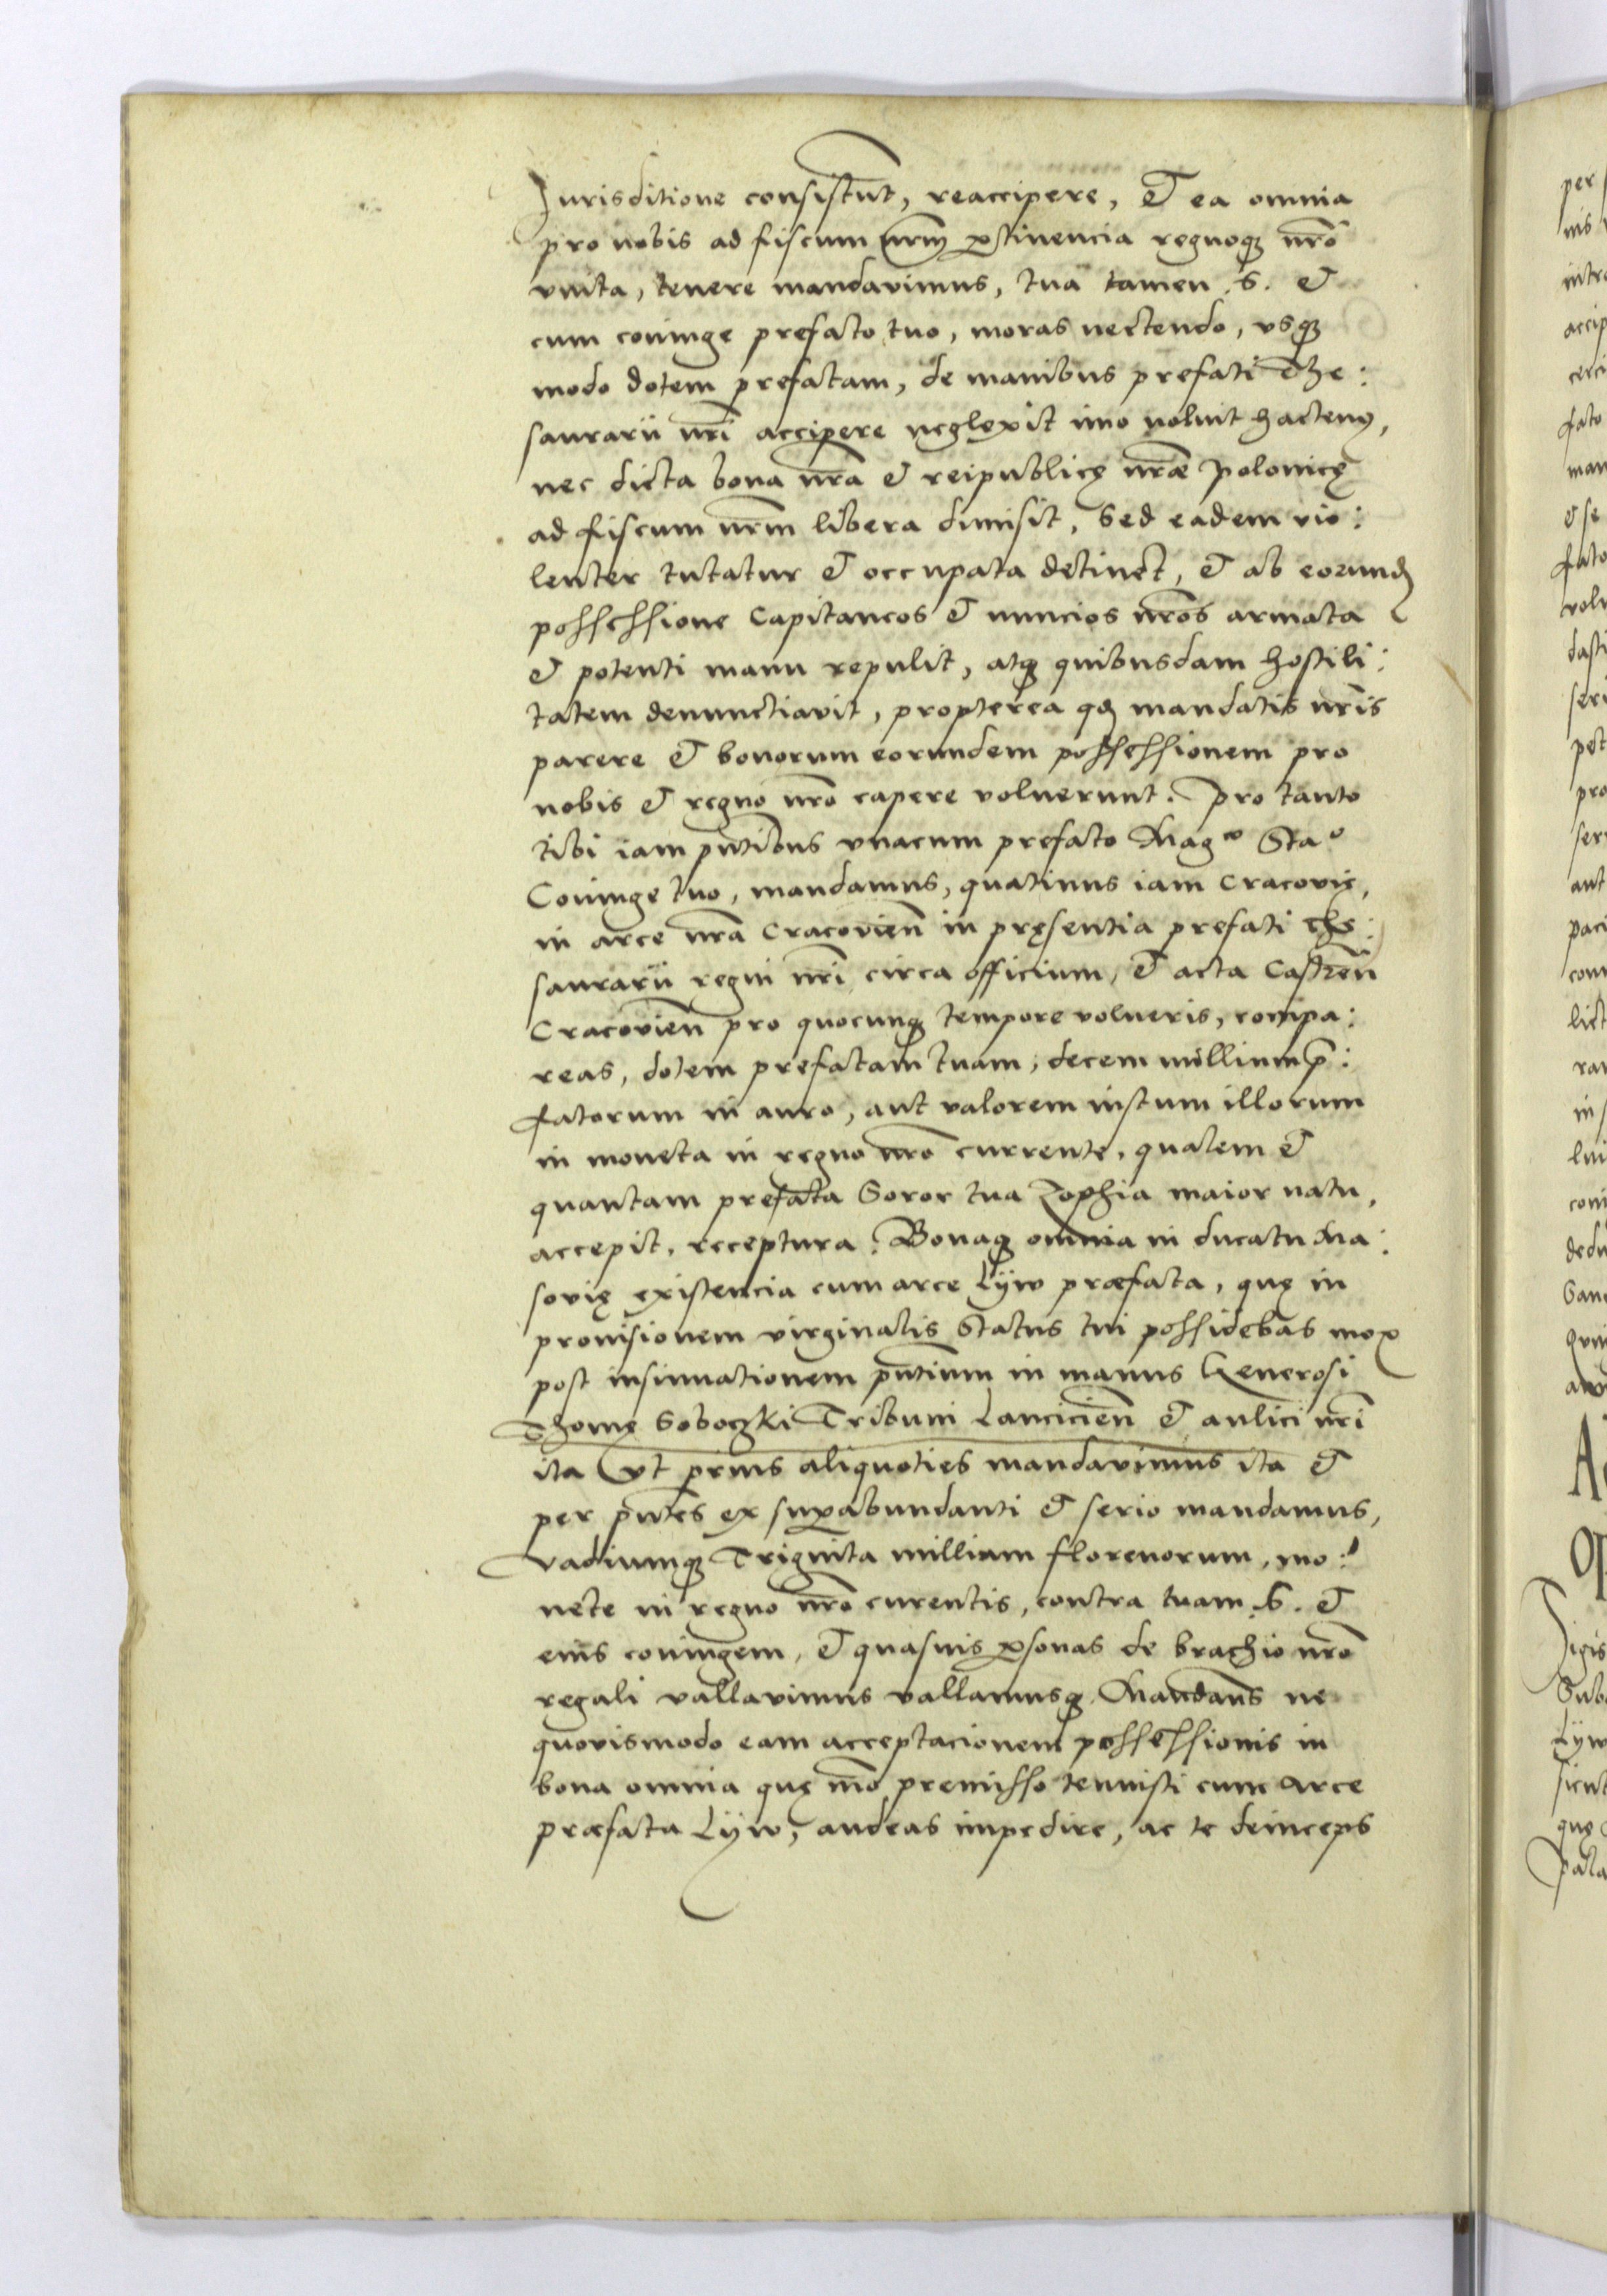 Jurisditione consistunt, reaccipere, Et ea omnia
pro nobis ad fiscum nr̄m pertinencia regnoq; nr̄o
vnita, tenere mandavimus, tua tamen .S. et
cum coniuge prefato tuo, moras nectendo, vsq;
modo dotem prefatam, de manibus prefati The:
saurarii nr̄i accipere neglexit imo noluit hactenus,
nec dicta bona nr̄a et reipublicę nr̄æ Polonicę
ad fiscum nr̄m libera dimisit, Sed eadem vio:
lenter tutatur et occupata detinet, et ab eorund
possessione Capitaneos et nuncios nr̄os armata
et potenti manu repulit, atq; quibusdam hostili:
tatem denunctiavit, propterea qd mandatis nr̄is
parere et bonorum eorundem possessionem pro
nobis et regno nr̄o capere voluerunt. Pro tanto
tibi iam pn̄tibus vnacum prefato Mag^co Sta^o
Coniuge tuo, mandamus, quatinus iam Cracovię,
in arce nr̄a Cracovien̄ in pręsentia prefati the:
saurarii regni nr̄i circa officium, et acta Castren̄
Cracovien̄ pro quocunq; tempore volueris, compa:
reas, dotem prefatam tuam, decem millium p̄:
fatorum in auro, aut valorem iustum illorum
in moneta in regno nr̄o currente, qualem et
quantam prefata Soror tua Zophia maior natu,
accepit, receptura: Bonaq; omnia in ducatu Ma:
sovię existencia cum arce Lyw præfata, quę in
provisionem virginalis Status tui possidebas mox
post insinuationem pn̄tium in manus Generosi
Thomę Soboczki Tribuni Lancicien̄ et aulici nr̄i
ita vt prius aliquoties mandavimus ita et
per pn̄tes ex superabundanti et serio mandamus,
Vadiumq; Triginta millium florenorum, mo:
nete in regno nr̄o curentis, contra tuam .S. et
eius coniugem, et quasuis personas de brachio nr̄o
regali vallavimus vallamusq; Mandan̄s ne
quovismodo eam acceptacionem possessionis in
bona omnia quę mō premisso tenuisti cum Arce
præfata Lyw, audeas impedire, ac te deinceps